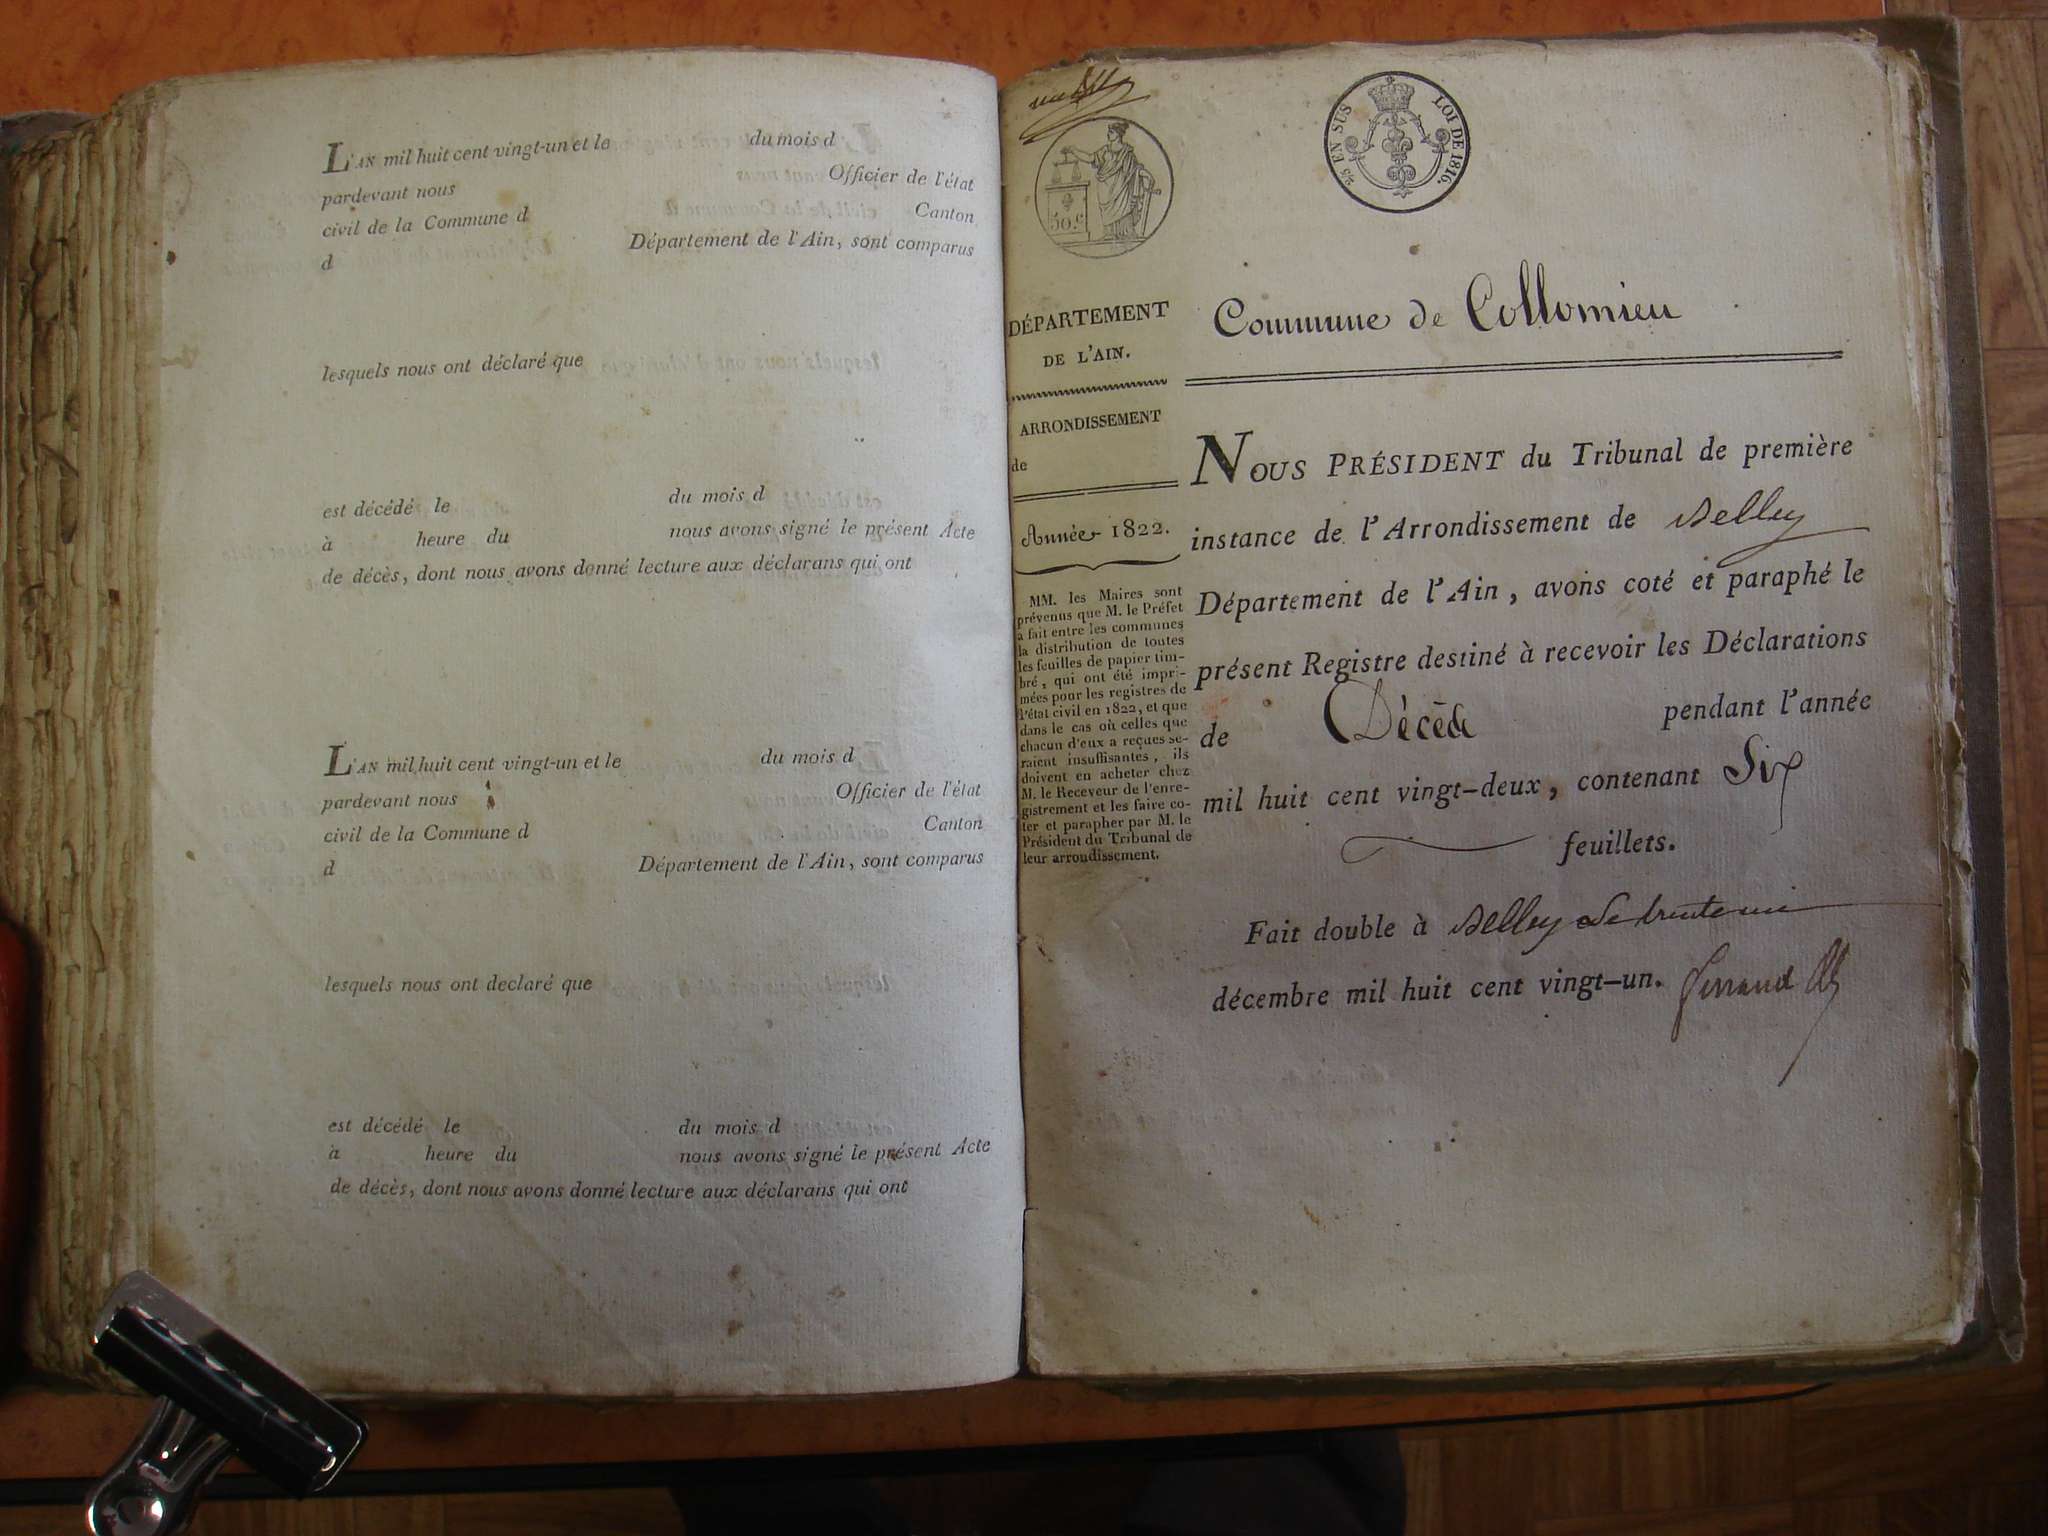 L'AN mil huit cent vingt-un et le du mois d
pardevant nous Officier de l'état
civil de la Commune d Canton
d Département de l'Ain, sont comparus
lesquels nous ont déclaré que
est décédé le du mois d
à heure du nous avons signé le présent Acte
de décès, dont nous avons donné lecture aux déclarans qui ont
L'AN mil huit cent vingt-un et le du mois d
pardevant nous Officier de l'état
civil de la Commune d Canton
d Département de l'Ain, sont comparus
lesquels nous ont declaré que
est décédé le du mois d
à heure du nous avons signé le présent Acte
de décès, dont nous avons donné lecture aux déclarans qui ont
50 c.
2/5 EN SUS LOI DE 1816.
DÉPARTEMENT
DE L'AIN.
ARRONDISSEMENT
de
Année 1822.
MM. les Maires sont
prévenus que M. le Préfet
a fait entre les communes
la distribution de toutes
les feuilles de papier tim-
bré, qui ont été impri-
mées pour les registres de
l'état civil en 1822, et que
dans le cas où celles que
chacun d'eux a reçues se-
raient insuffisantes, ils
doivent en acheter chez
M. le Receveur de l'enre-
gistrement et les faire co-
ter et parapher par M. le
Président du Tribunal de
leur arrondissement.
Commune de Collomieu
NOUS PRÉSIDENT du Tribunal de première
instance de l'Arrondissement de Belley
Département de l'Ain, avons coté et paraphé le
présent Registre destiné à recevoir les Déclarations
de Décès pendant l'année
mil huit cent vingt-deux, contenant Six
feuillets.
Fait double à Belley le trente un
décembre mil huit cent vingt-un.